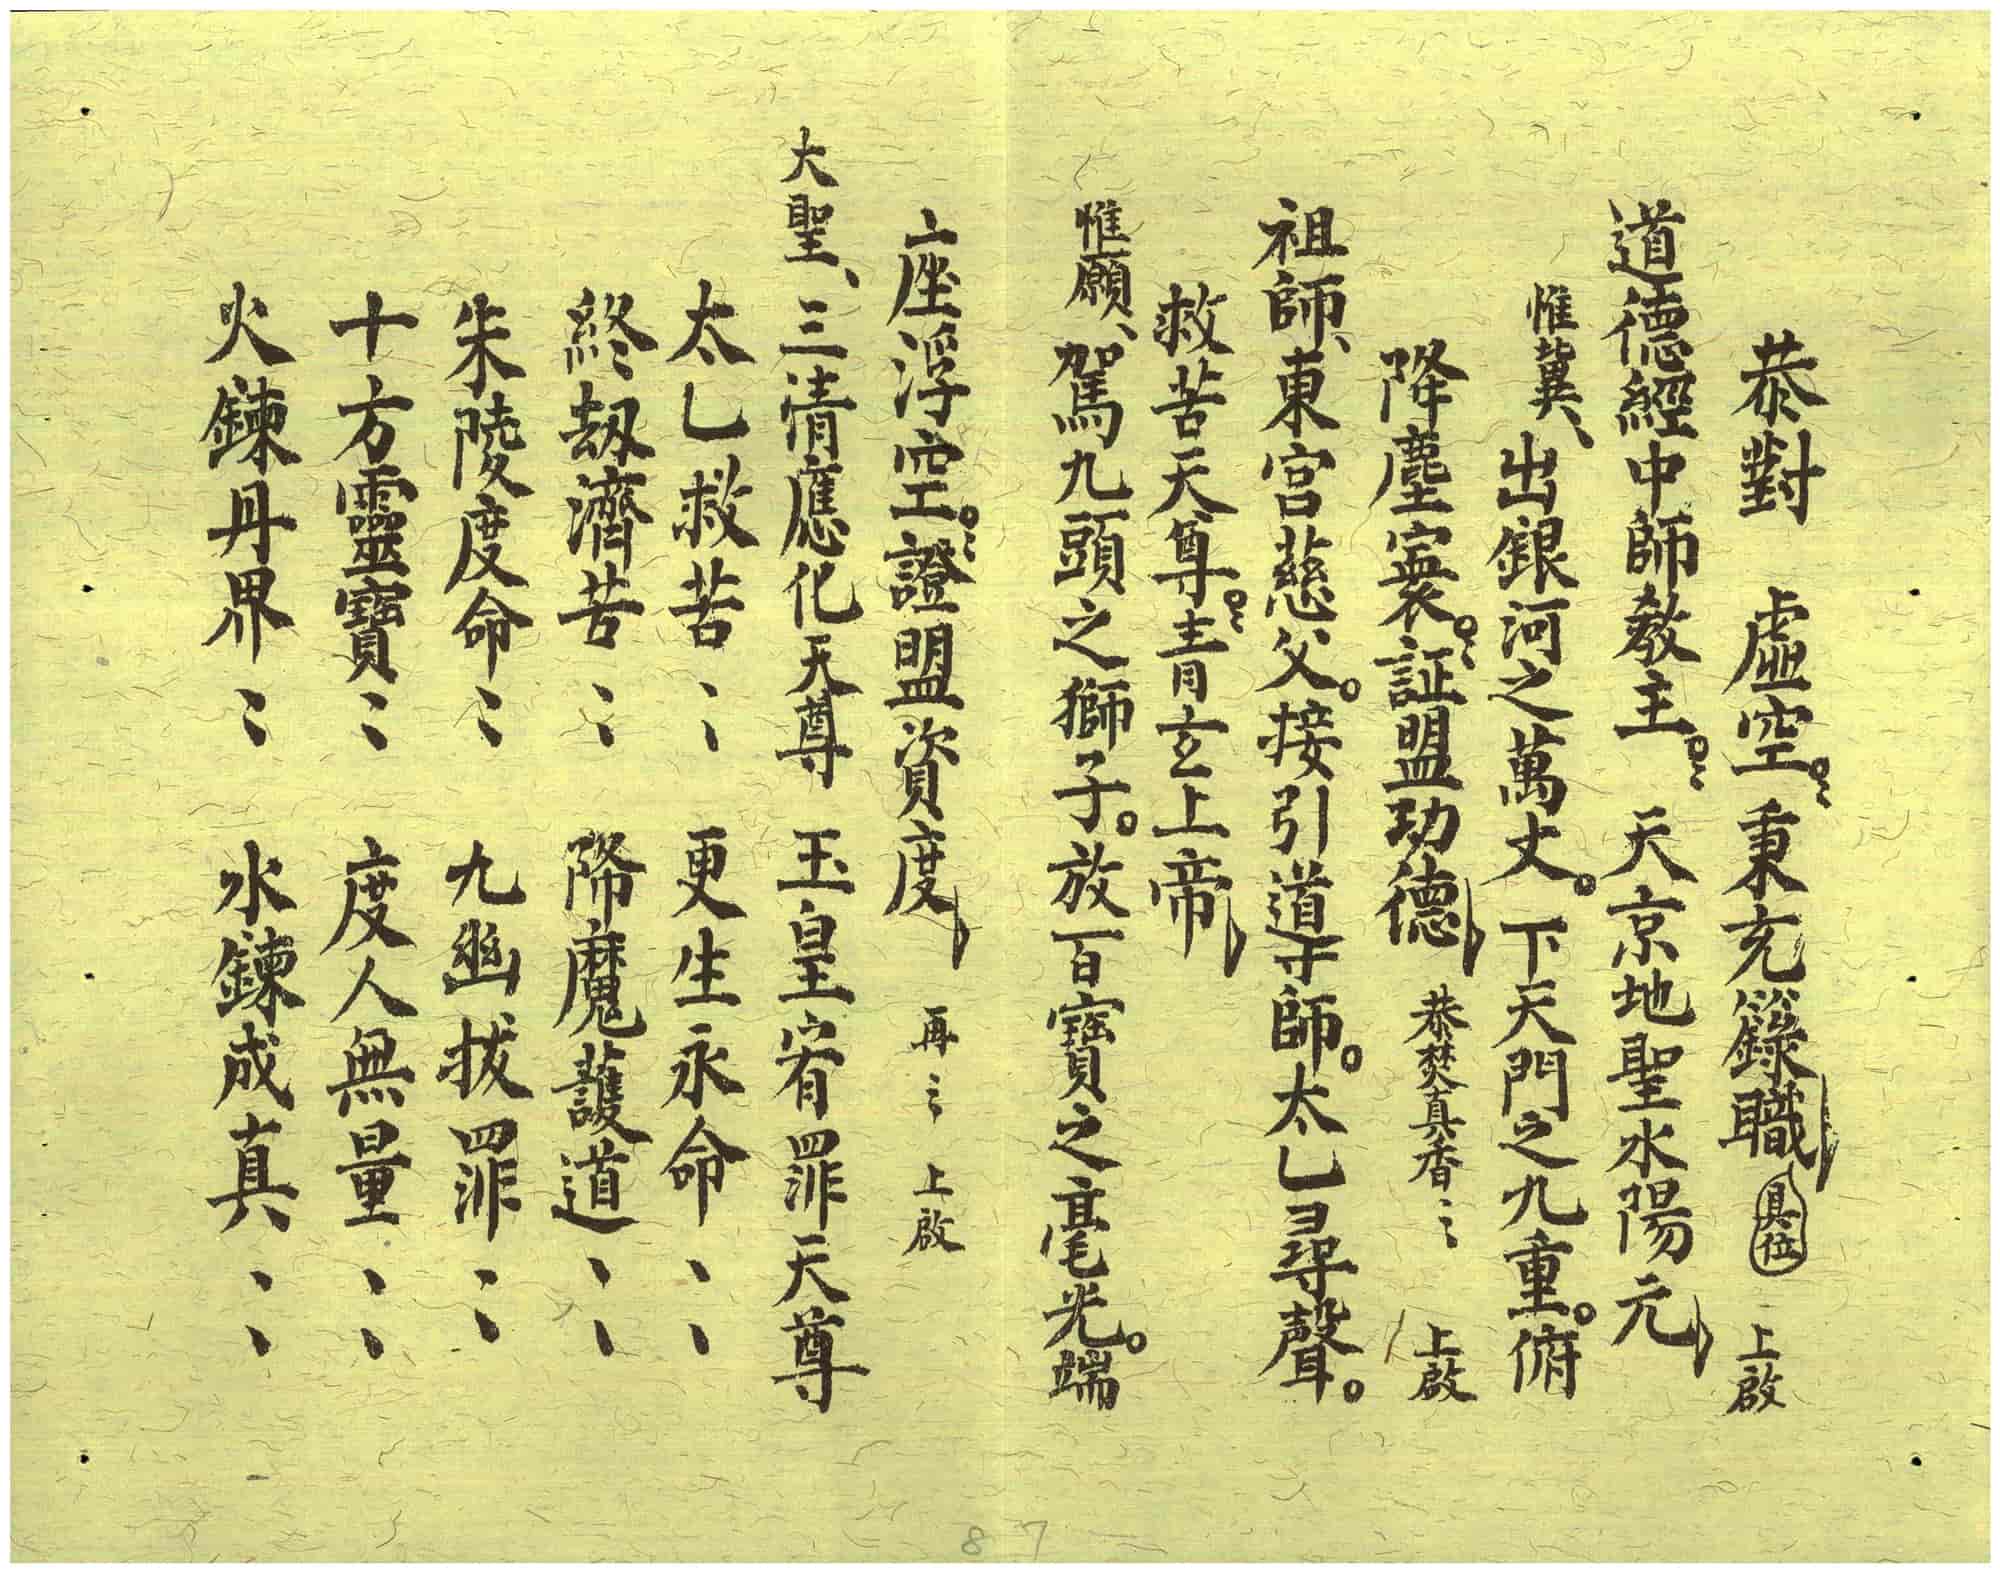 恭對　虛空。〻秉充籙職 具位　上啟
道德經中師教主。〻　天京地聖水陽元
惟冀、出銀河之萬丈。下天門之九重。俯
降塵寰。〻証盟功德　恭焚真香〻　上啟
祖師、東宮慈父。接引道㝵師。太乙尋聲。
救苦天尊。〻青玄上帝
惟願、駕九頭之獅子。放百寶之毫光。端
座浮空。〻證盟資度　再〻　上啟
大聖、三清應化天尊　玉皇宥罪天尊
太乙救苦〻　更生永命〻
終劫濟苦〻　降魔護道〻
朱陵度命〻　九幽拔罪〻
十方靈寶〻　度人無量〻
火鍊丹界〻　水鍊成真〻
8 7